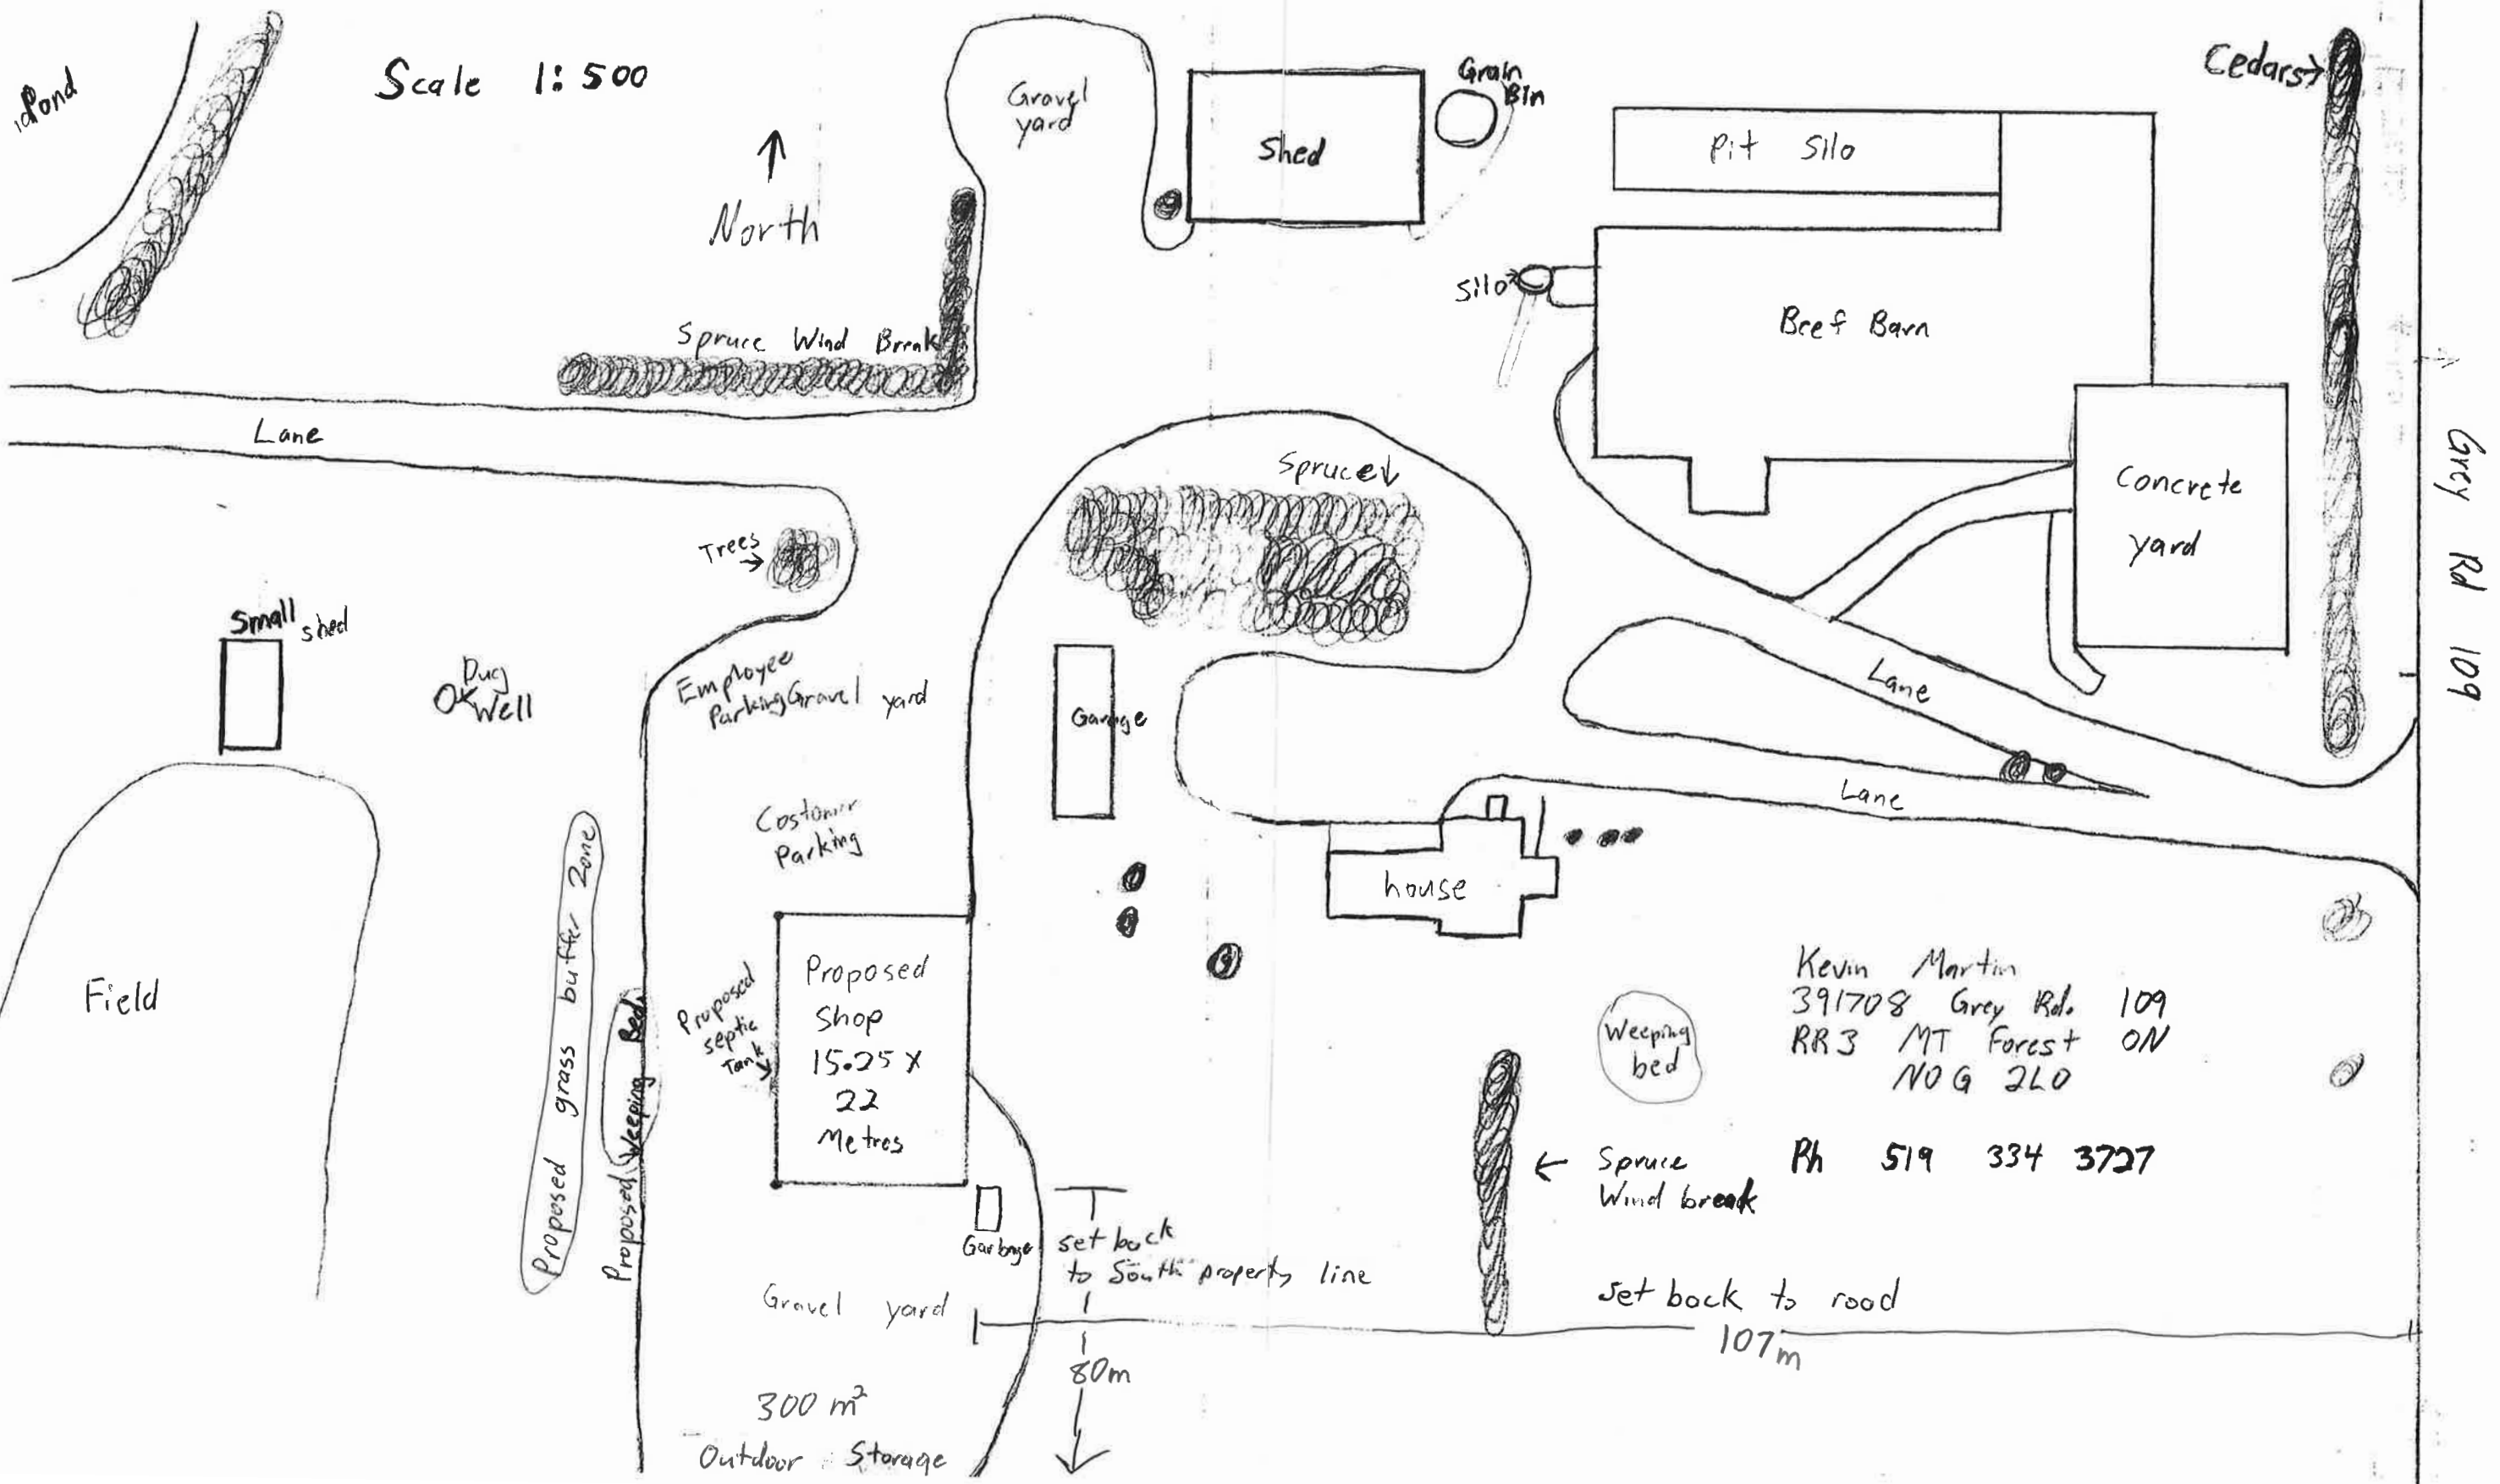 Pond
Scale 1:500
North
Gravel
yard
Shed
Grain
Bin
Pit Silo
Cedars
Silo
Beef Barn
Spruce Wind Break
Lane
Spruce
Concrete
yard
Grey Rd 109
Trees
Small shed
Dug
Well
Employee
Parking Gravel yard
Garage
Lane
Lane
Costomer
Parking
house
Field
Proposed grass buffer zone
Proposed Weeping Bed
Proposed
septic
Tank
Proposed
Shop
15.25 X
22
Metres
Weeping
bed
Kevin Martin
391708 Grey Rd. 109
RR3 MT Forest ON
N0G 2L0
Ph 519 334 3727
Spruce
Wind break
Garbage
set back
to South property line
80m
set back to road
107m
Gravel yard
300 m²
Outdoor Storage